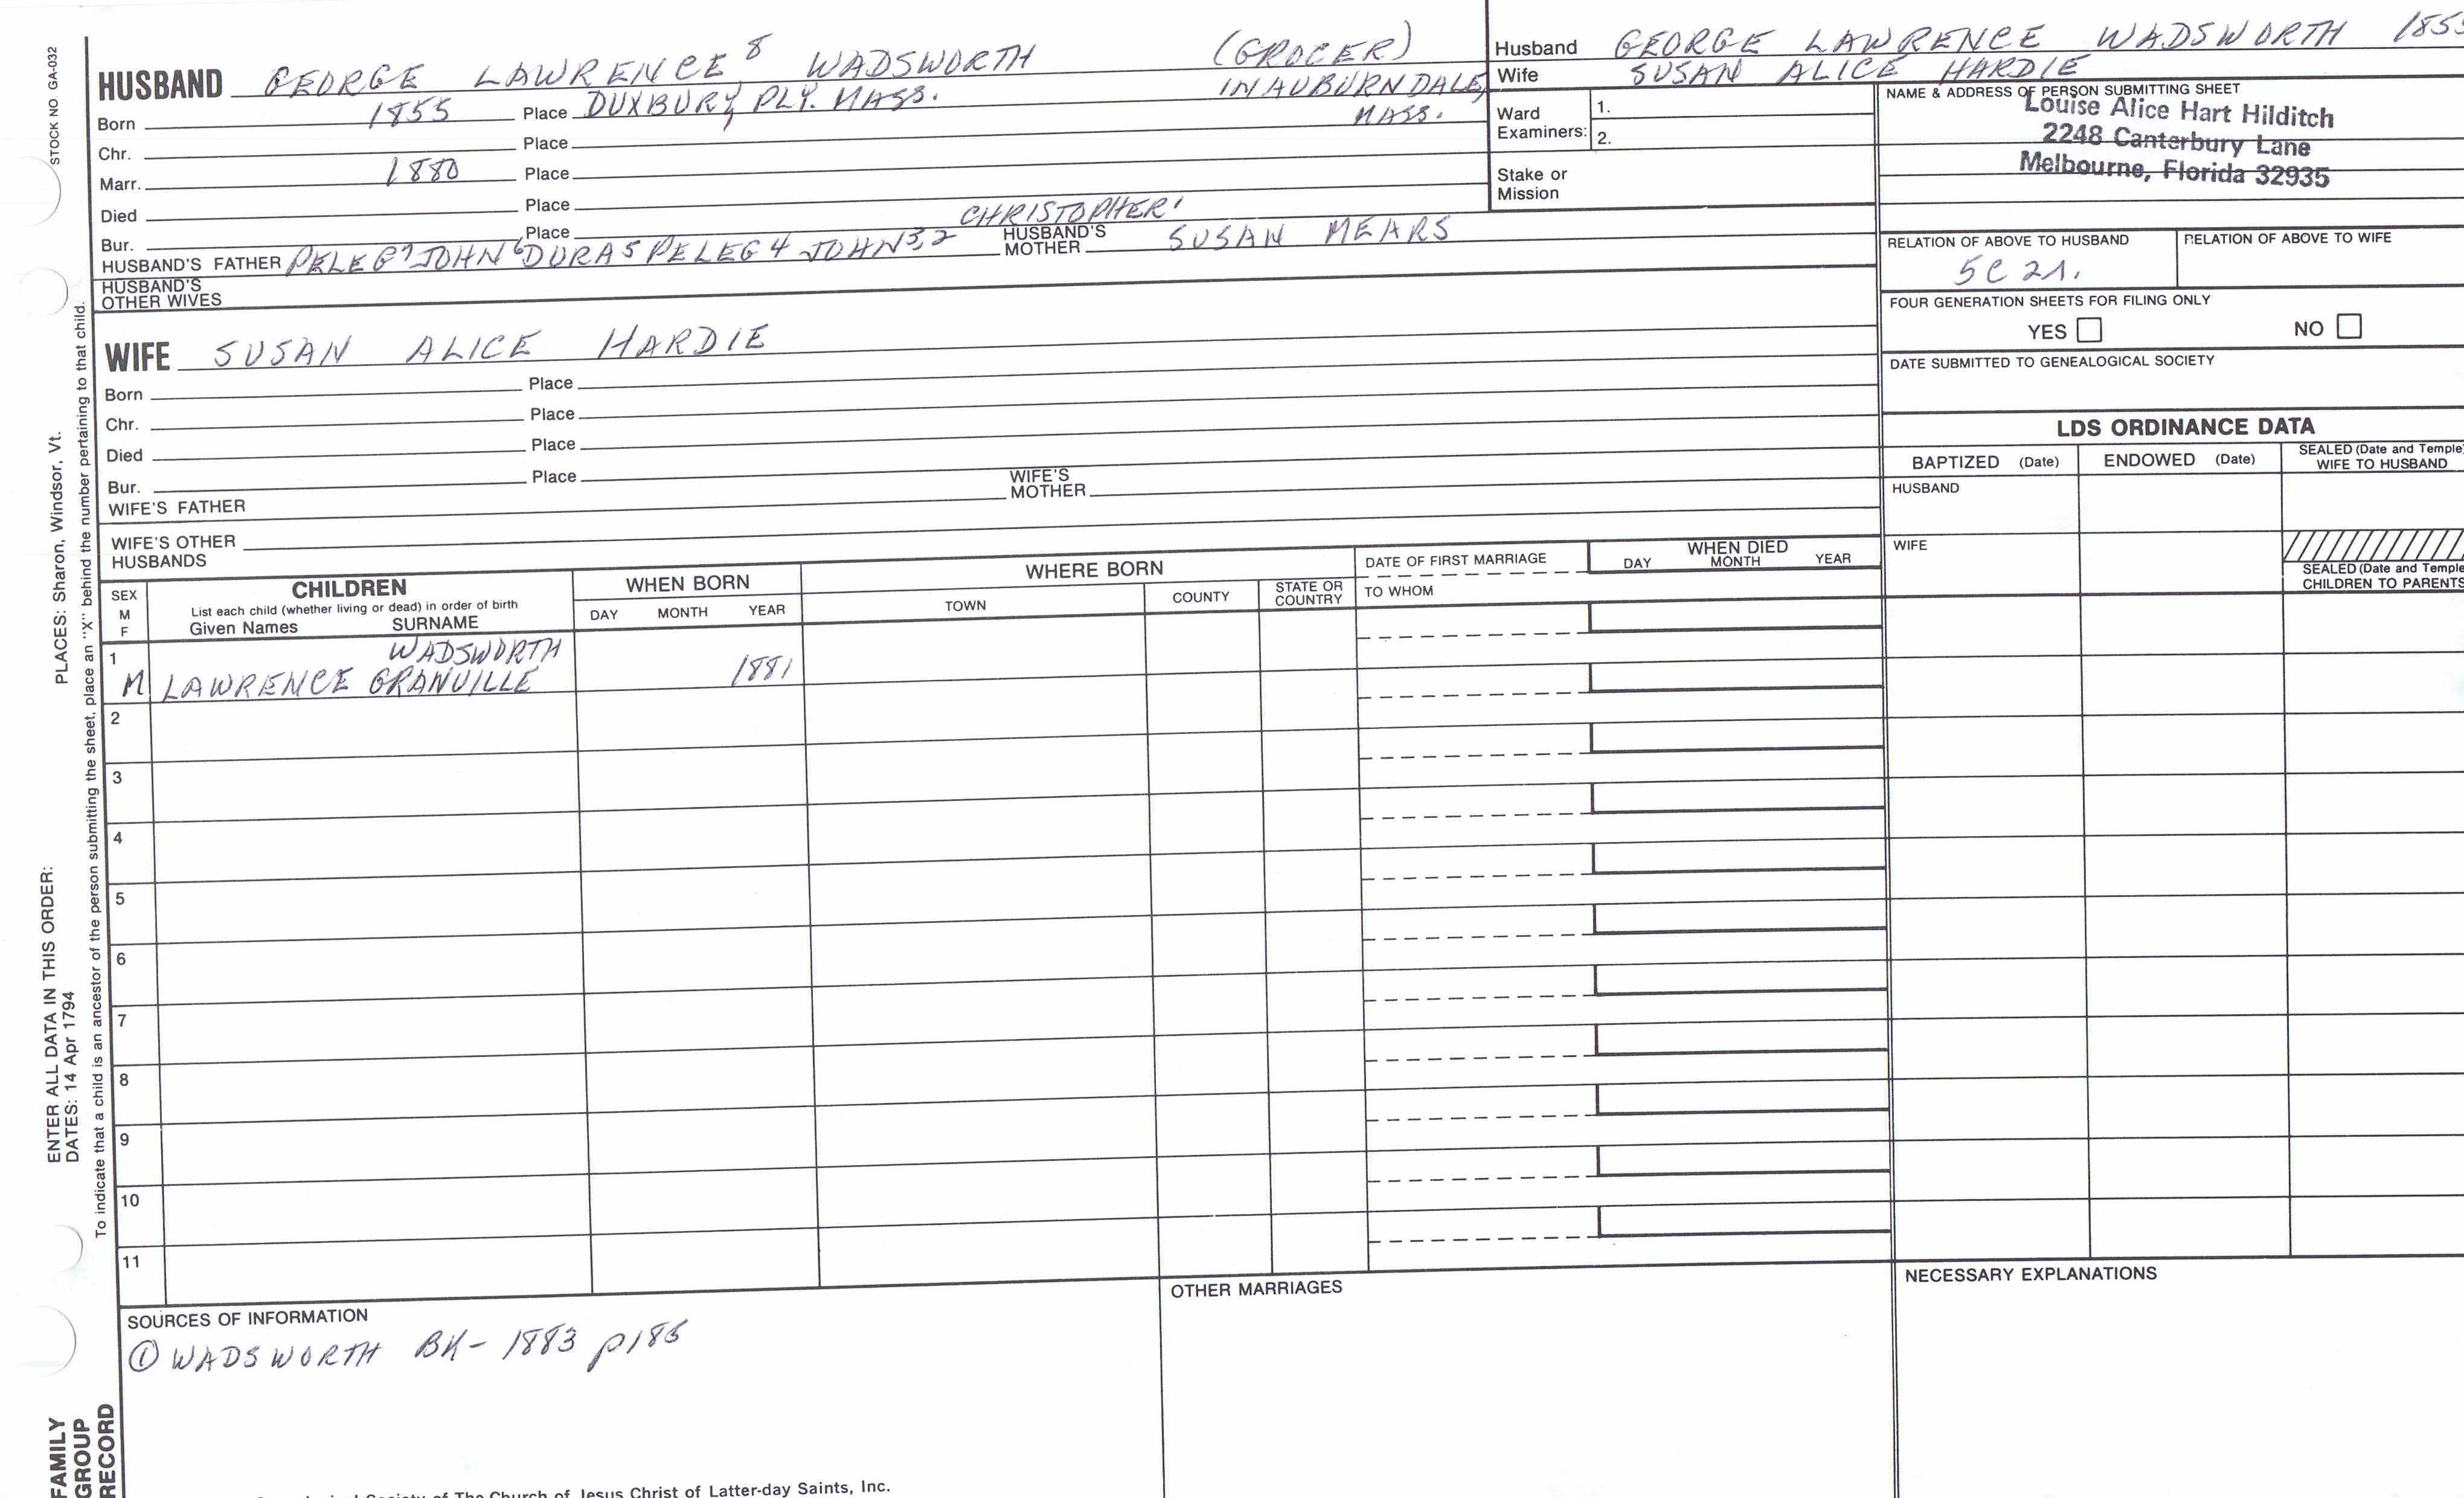 STOCK NO GA-032
PLACES: Sharon, Windsor, Vt.
ENTER ALL DATA IN THIS ORDER:
DATES: 14 Apr 1794
To indicate that a child is an ancestor of the person submitting the sheet, place an "X" behind the number pertaining to that child.
FAMILY
GROUP
RECORD
HUSBAND GEORGE LAWRENCE 8 WADSWORTH (GROCER)
IN AUBURNDALE,
MASS.
Born 1855 Place DUXBURY, PLY. MASS.
Chr. Place
Marr. 1880 Place
Died Place
Bur. Place
CHRISTOPHER 1
HUSBAND'S FATHER PELEG 7 JOHN 6 DURA 5 PELEG 4 JOHN 3,2 HUSBAND'S MOTHER SUSAN MEARS
HUSBAND'S
OTHER WIVES
WIFE SUSAN ALICE HARDIE
Born Place
Chr. Place
Died Place
Bur. Place
WIFE'S FATHER WIFE'S MOTHER
WIFE'S OTHER
HUSBANDS
Husband GEORGE LAWRENCE WADSWORTH 1855
Wife SUSAN ALICE HARDIE
Ward
Examiners:
1.
2.
Stake or
Mission
NAME & ADDRESS OF PERSON SUBMITTING SHEET
Louise Alice Hart Hilditch
2248 Canterbury Lane
Melbourne, Florida 32935
RELATION OF ABOVE TO HUSBAND RELATION OF ABOVE TO WIFE
5C 2r.
FOUR GENERATION SHEETS FOR FILING ONLY
YES NO
DATE SUBMITTED TO GENEALOGICAL SOCIETY
LDS ORDINANCE DATA
BAPTIZED (Date) ENDOWED (Date) SEALED (Date and Temple)
WIFE TO HUSBAND
HUSBAND
WIFE
SEALED (Date and Temple
CHILDREN TO PARENTS
SEX
M
F
CHILDREN
List each child (whether living or dead) in order of birth
Given Names SURNAME
WHEN BORN
DAY MONTH YEAR
WHERE BORN
TOWN COUNTY STATE OR COUNTRY
DATE OF FIRST MARRIAGE
TO WHOM
WHEN DIED
DAY MONTH YEAR
1 WADSWORTH
M LAWRENCE GRANVILLE 1881
2
3
4
5
6
7
8
9
10
11
SOURCES OF INFORMATION
① WADSWORTH BK- 1883 p186
OTHER MARRIAGES
NECESSARY EXPLANATIONS
Society of The Church of Jesus Christ of Latter-day Saints, Inc.